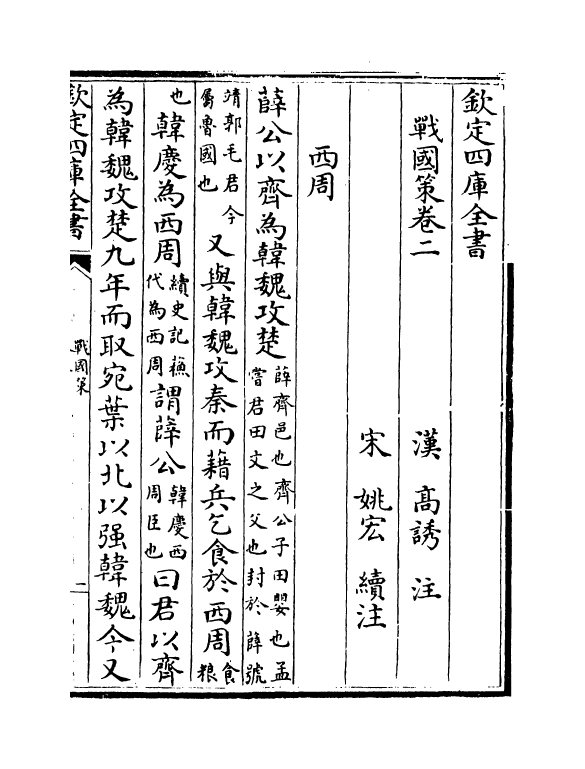 欽定四庫全書
戰國策卷二　漢　高誘　注
宋　姚宏　續注
西周
薛公以齊為韓魏攻楚薛齊邑也齊公子田嬰也孟嘗君田文之父也封於薛號
靖郭毛君今屬魯國也又與韓魏攻秦而藉兵乞食於西周食糧
也韓慶為西周續史記蘓代為西周謂薛公韓慶西周臣也曰君以齊
為韓魏攻楚九年而取宛葉以北以强韓魏今又
欽定四庫全書　戰國策